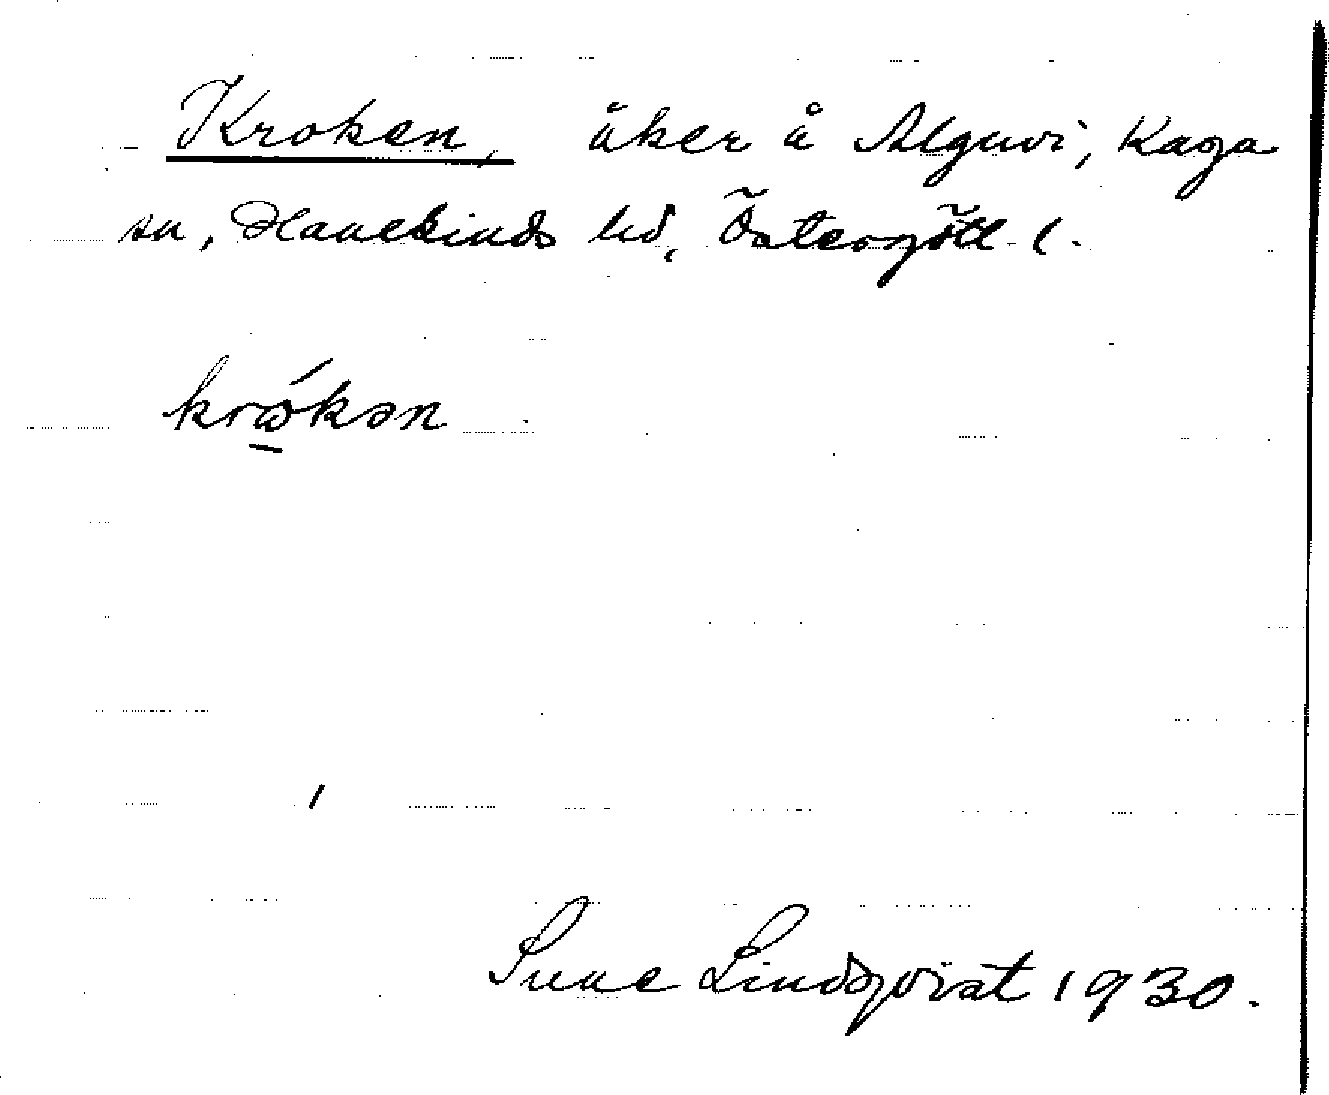 Kroken, åker å Alguvi, Kaga
sn, Hanekinds hd, Östergötl. l.
krǿkən
Sune Lindqvist 1930.